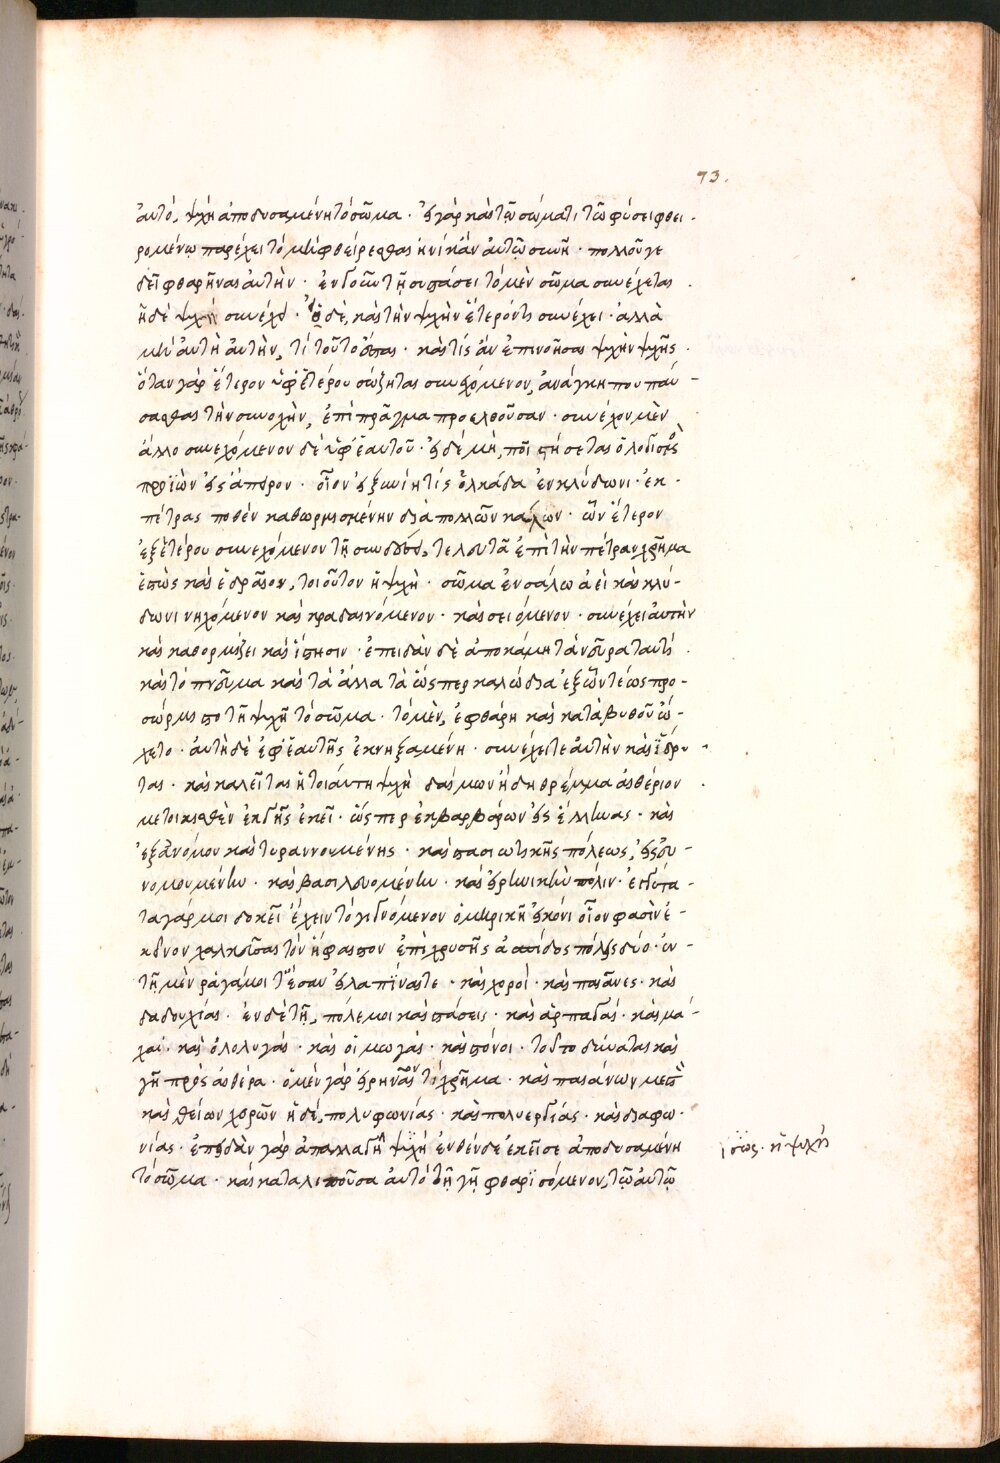 73.
αὐτό, ψυχὴ ἀποδυσαμένη τὸ σῶμα · εἰ γὰρ καὶ τῷ σώματι τῷ φύσει φθει-
ρομένῳ παρέχει τὸ μὴ φθείρεσθαι ἡνίκ' ἂν αὐτῷ συνῇ · πολλοῦ γε
δεῖ φθαρῆναι αὐτὴν · ἐν δὲ οὖν τῇ συστάσει τὸ μὲν σῶμα συνέχεται ·
ἡ δὲ ψυχὴ συνέχει · εἰ δὲ, καὶ τὴν ψυχὴν ἕτερόν τι συνέχει · ἀλλὰ
μὴ αὐτὴ αὐτὴν, τί τοῦτο ἔσται · καὶ τίς ἂν ἐπινοῆσαι ψυχὴν ψυχῆς ·
ὅταν γὰρ ἕτερον ὑφ' ἑτέρου σώζηται συνεχόμενον, ἀνάγκη που παύ-
σασθαι τὴν συνοχὴν, ἐπὶ πρᾶγμα προελθοῦσαν · συνέχον μὲν
ἄλλο συνεχόμενον δὲ ὑφ' ἑαυτοῦ · εἰ δὲ μὴ, ποῖ στήσεται ὁ λογισμὸς
προϊὼν εἰς ἄπειρον · οἷον εἰ ξυνίῃ τίς ὁλκάδα ἐν κλύδωνι · ἐκ -
πέτρας ποθὲν καθωρμισμένην διὰ πολλῶν κάλων · ὧν ἕτερον
ἐξ ἑτέρου συνεχόμενον τῇ συνδέσει, τελευτᾷ ἐπὶ τὴν πέτραν χρῆμα
ἑστὼς καὶ ἑδραῖον, τοιοῦτον ἡ ψυχὴ · σῶμα ἐν σάλῳ ἀεὶ καὶ κλύ-
δωνι νηχόμενον καὶ κραδαινόμενον · καὶ σειόμενον · συνέχει αὐτὴν
καὶ καθορμίζει καὶ ἵστησιν · ἐπειδὰν δὲ ἀποκάμῃ τὰ νεῦρα ταυτὶ ·
καὶ τὸ πνεῦμα καὶ τὰ ἄλλα τὰ ὥσπερ καλώδια ἐξ ὧν τέως προ-
σώρμιστο τῇ ψυχῇ τὸ σῶμα · τὸ μὲν, ἐφθάρη καὶ κατὰ βυθοῦ ᾤ-
χετο · αὐτὴ δὲ ἐφ' ἑαυτῆς ἐκνηξαμένη · συνέχει τε αὐτὴν καὶ ἵδρυ-
ται · καὶ καλεῖται ἡ τοιαύτη ψυχὴ δαίμων ἤδη θρέμμα αἰθέριον ·
μετοικισθὲν ἐκ γῆς ἐκεῖ · ὥσπερ ἐκ βαρβάρων εἰς ἕλληνας · καὶ
ἐξ ἀνόμου καὶ τυραννουμένης · καὶ στασιωτικῆς πόλεως, εἰς εὐ-
νομουμένην · καὶ βασιλευομένην · καὶ εἰρηνικὴν πόλιν · ἐγγύτα-
τα γάρ μοι δοκεῖ ἔχειν τὸ γιγνόμενον ὁμηρικῇ εἰκόνι οἷον φασὶν ἐ-
κεῖνον χαλκεῦσαι τὸν ἥφαιστον ἐπὶ χρυσῆς ἀσπίδος πόλεις δύο · ἐν -
τῇ μὲν ῥα γάμοι τ' ἔσαν εἰλαπίναι τε · καὶ χοροὶ · καὶ παιᾶνες · καὶ
δαδουχίαι · ἐν δὲ τῇ, πόλεμοι καὶ στάσεις · καὶ ἁρπαγαὶ · καὶ μά-
χαι · καὶ ὀλολυγαὶ · καὶ οἰμωγαὶ · καὶ στόνοι · τοῦτο δύναται καὶ
γῆ πρὸς αἰθέρα · ὁ μὲν γὰρ εἰρηναῖόν τι χρῆμα · καὶ παιάνων μεστὸν
καὶ θείων χορῶν ἡ δὲ, πολυφωνίας · καὶ πολυεργίας · καὶ διαφω-
νίας · ἐπειδὰν γὰρ ἀπαλλαγῇ ψυχὴ ἐνθένδε ἐκεῖσε ἀποδυσαμένη
τὸ σῶμα · καὶ καταλιποῦσα αὐτὸ τῇ γῇ φθαρισόμενον, τῷ αὐτῷ
ἴσως · ἡ ψυχὴ